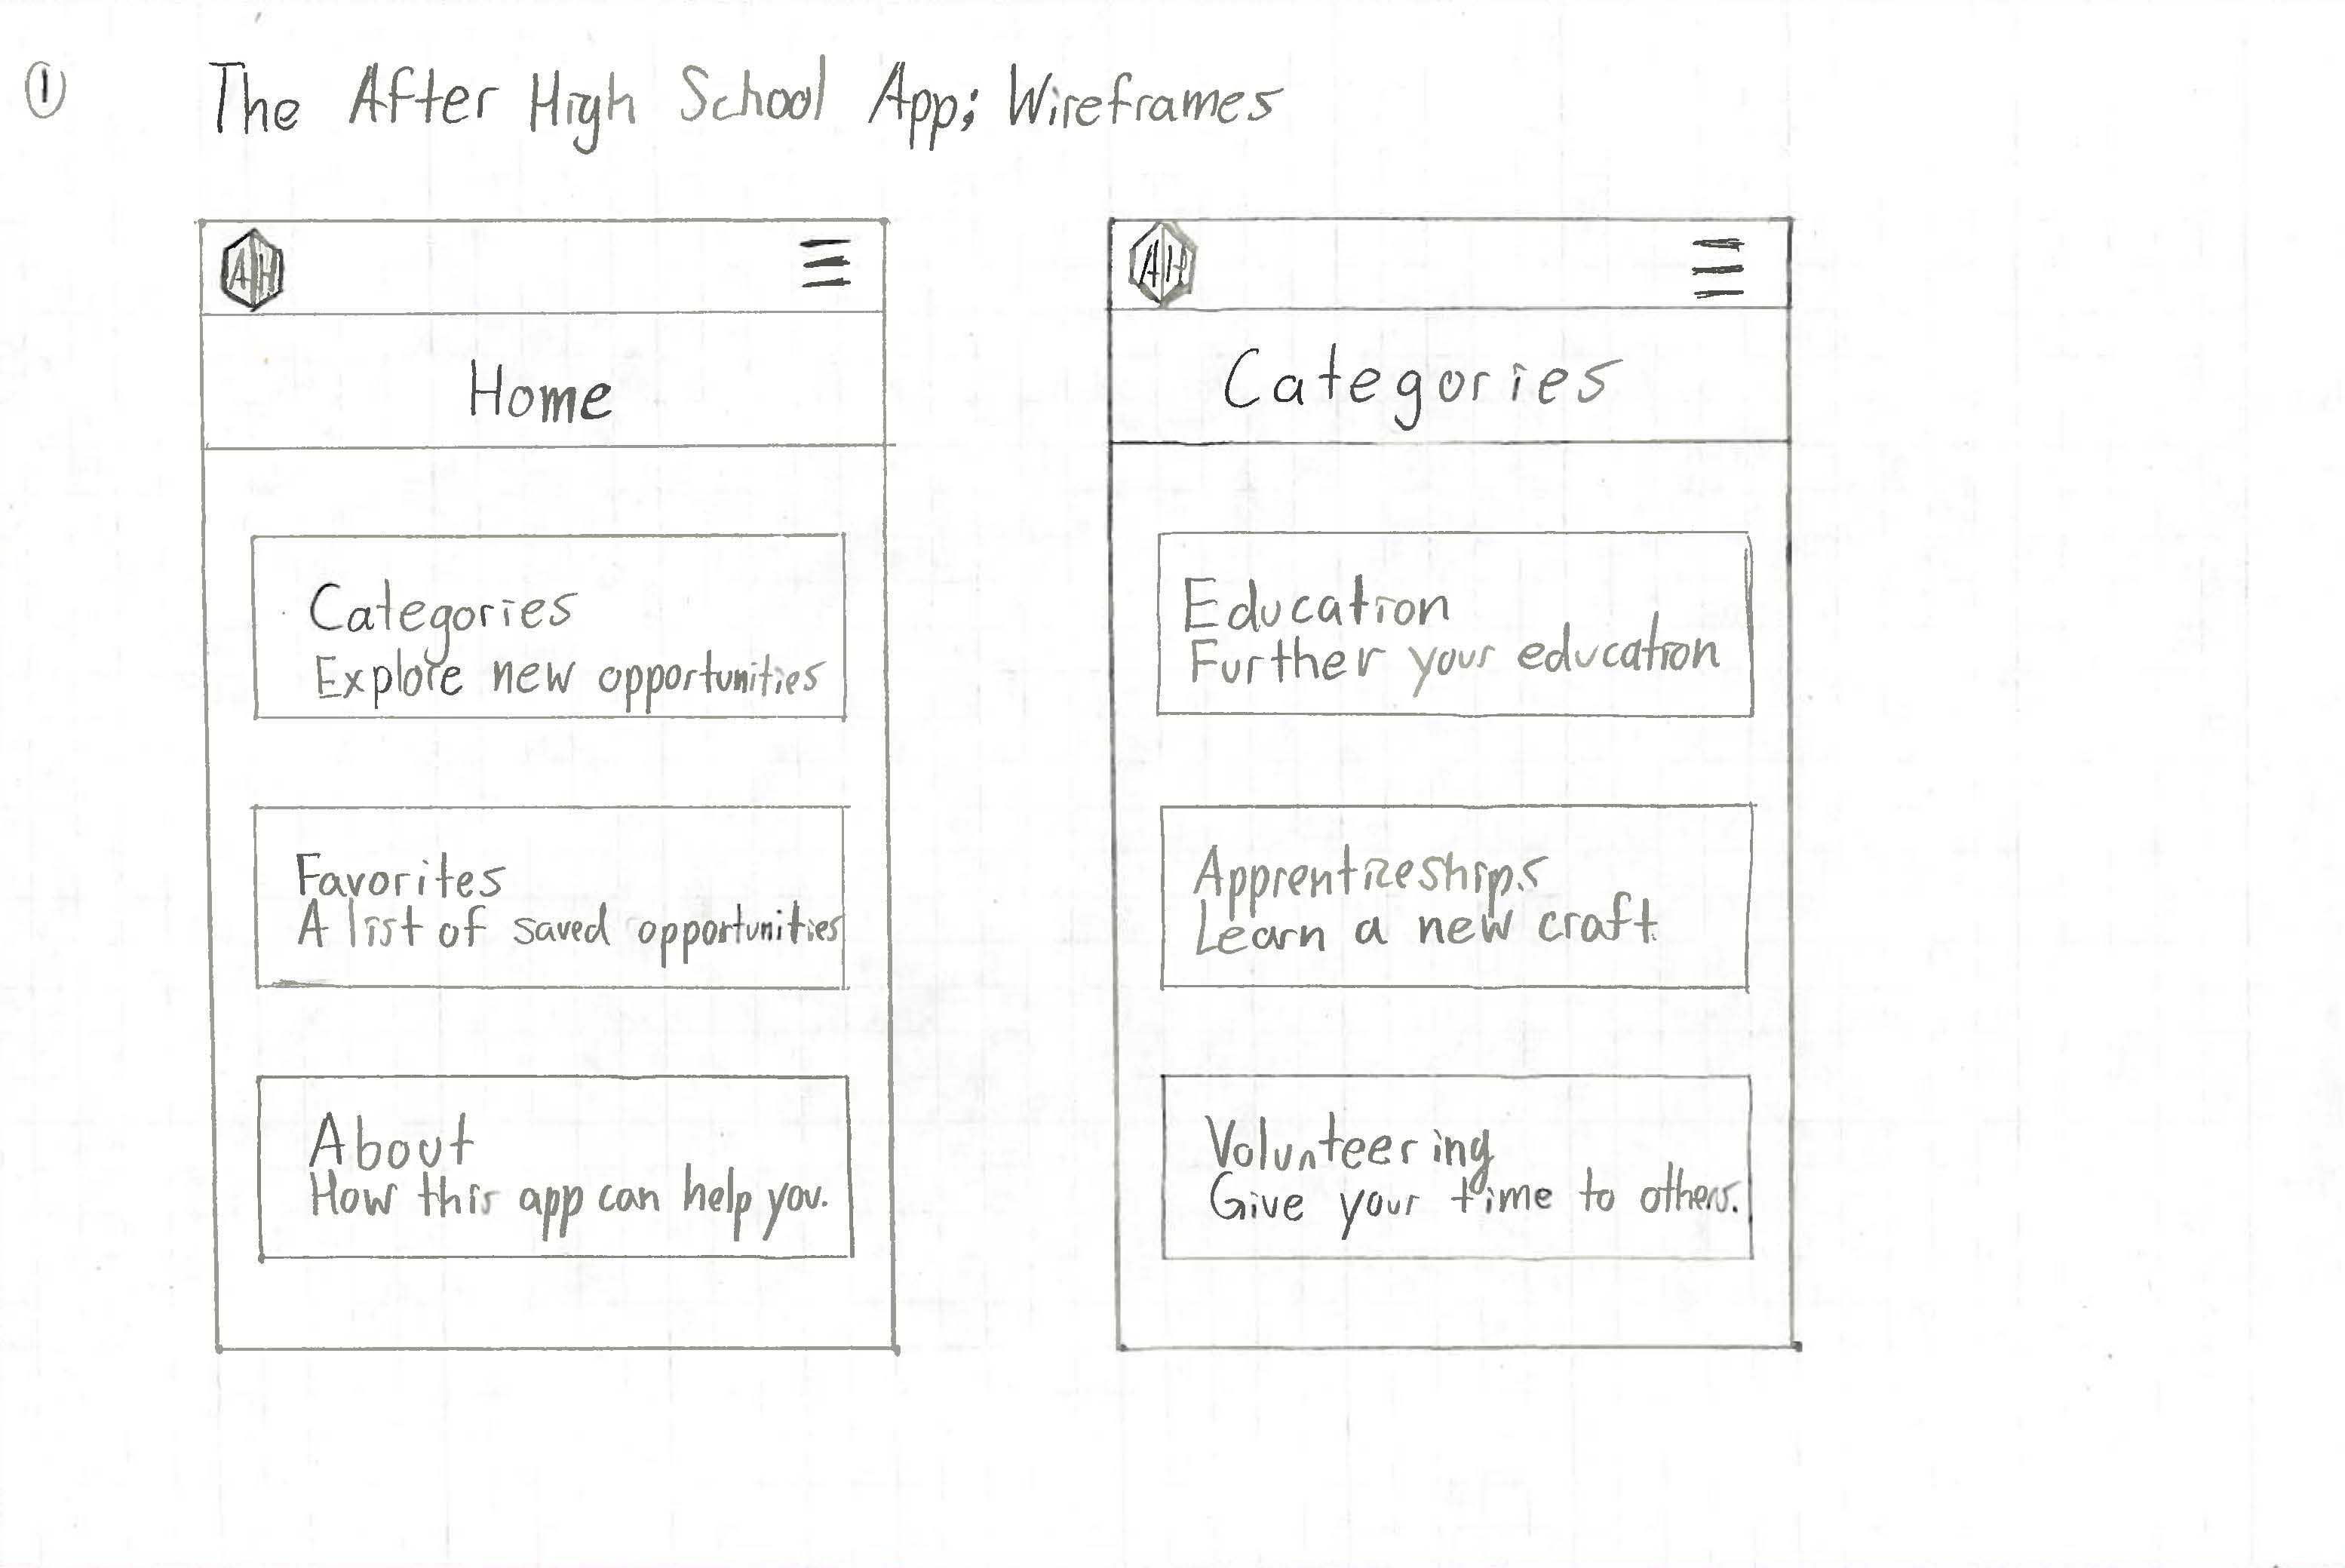 1
The After High School App; Wireframes
AH
Home
Categories
Explore new opportunities
Favorites
A list of saved opportunities
About
How this app can help you.
AH
Categories
Education
Further your education
Apprenticeships
Learn a new craft.
Volunteering
Give your time to others.